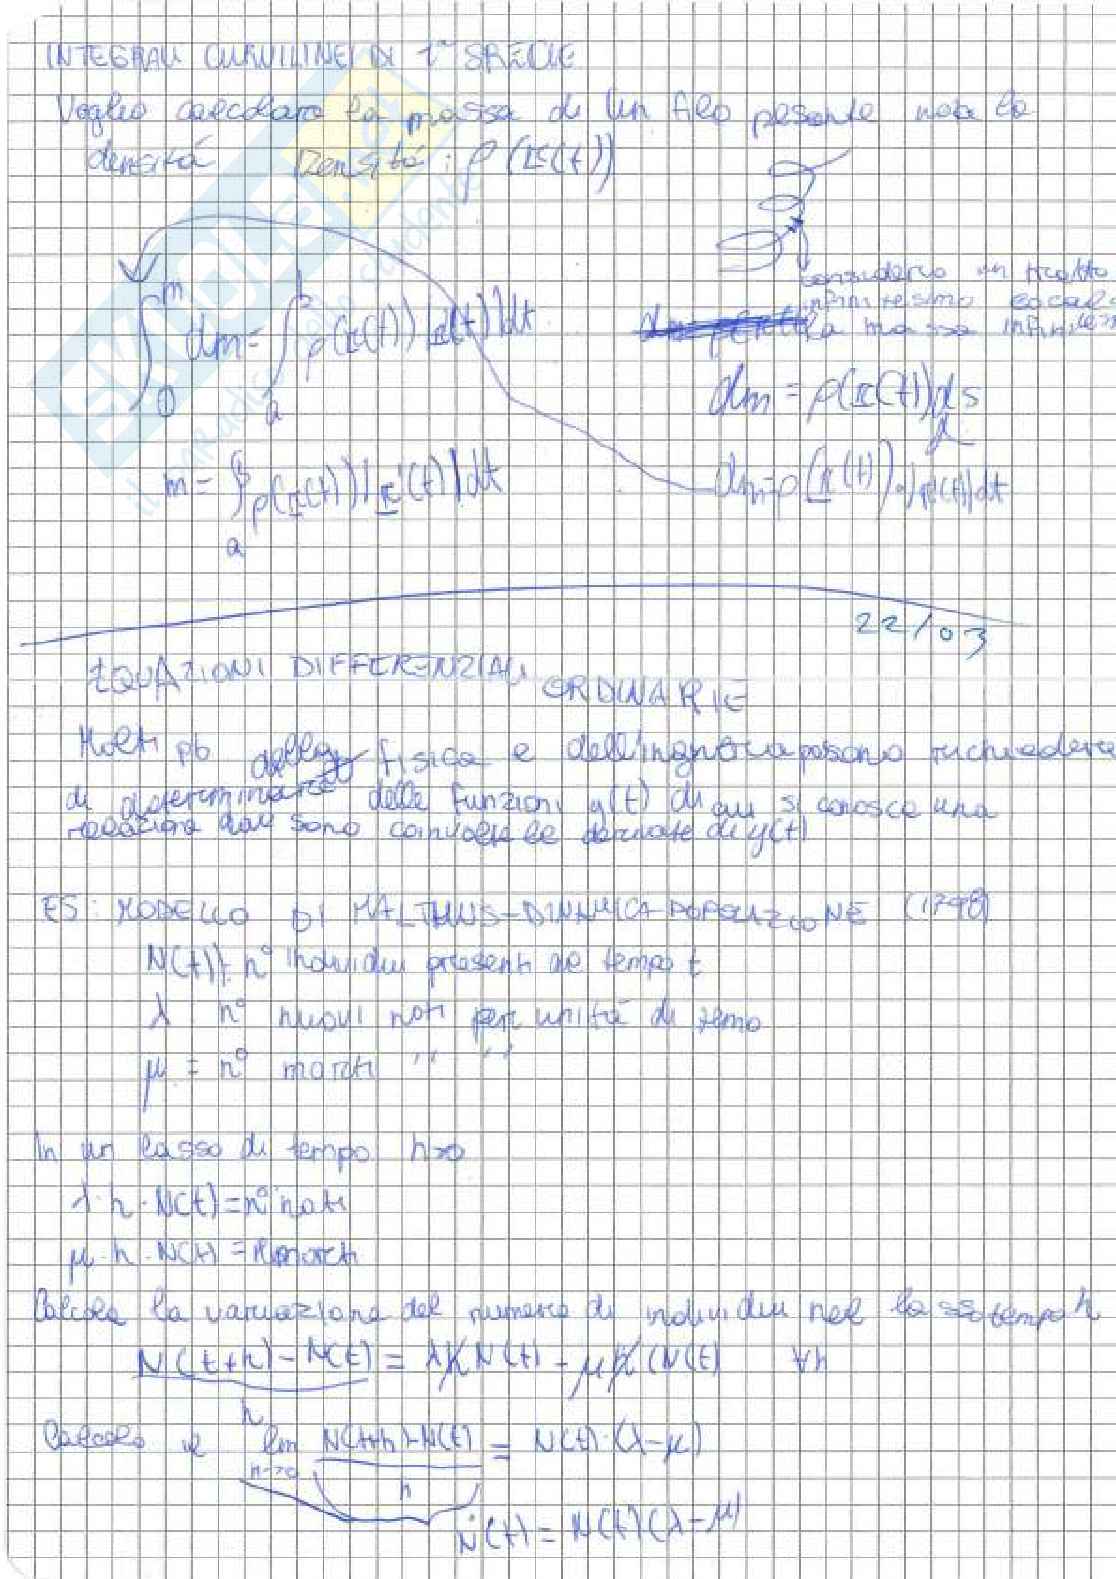 INTEGRALI CURVILINEI DI 1° SPECIE
Voglio calcolare la massa di un filo pesante nota la
densità Densità: ρ(r(t))
considero un tratto
infinitesimo calcolo
la massa infinites
∫₀ᵐ dm = ∫ₐᵇ ρ(r(t)) |r'(t)| dt
dm = ρ(r(t)) ds
m = ∫ₐᵇ ρ(r(t)) |r'(t)| dt
dm = ρ(r(t)) · |r'(t)| dt
22/03
EQUAZIONI DIFFERENZIALI ORDINARIE
Molti pb della fisica e possono richiedere
di determinare delle funzioni y(t) di cui si conosce una
relazione dove sono coinvolte le derivate di y(t)
ES: MODELLO DI MALTHUS-DINAMICA POPOLAZIONE (1798)
N(t): n° individui presenti al tempo t
λ: n° nuovi nati per unità di
μ = n° morti " "
In un lasso di tempo h>0
λ·h·N(t) = n° nati
μ·h·N(t) = n morti
Calcola la variazione del numero di individui nel lasso tempo h
N(t+h)-N(t) / h = λhN(t) - μh(N(t) ∀h
Calcolo il lim h→0 N(t+h)-N(t) / h = N(t)·(λ-μ)
Ṅ(t) = N(t)(λ-μ)
SKUOLA.net
il paradiso dello studente